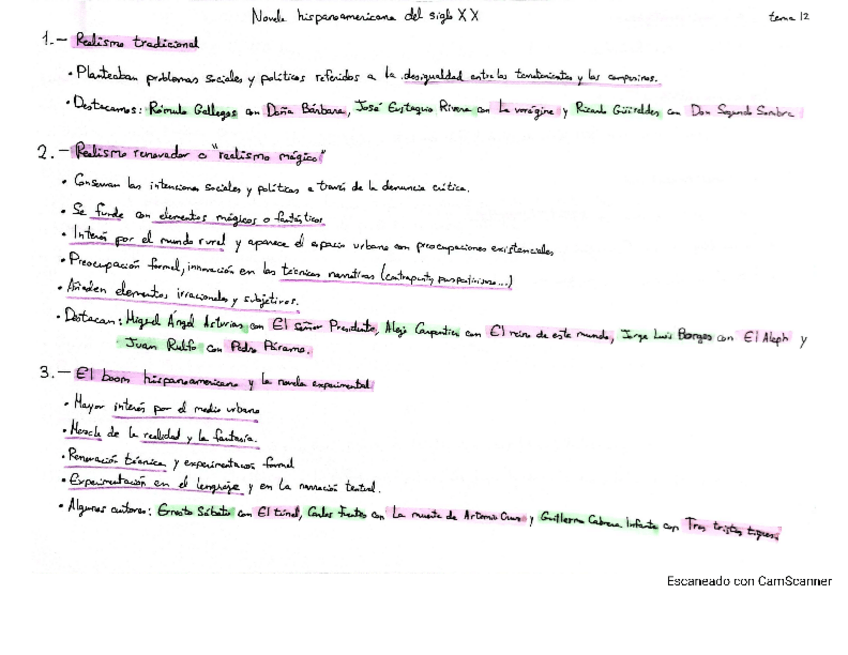 Novela hispanoamericana del siglo XX
tema 12
1.- Realismo tradicional
• Planteaban problemas sociales y políticos referidos a la desigualdad entre los terratenientes y los campesinos.
• Destacamos: Rómulo Gallegos con Doña Bárbara, José Eustaquio Rivera con La vorágine y Ricardo Güiraldes con Don Segundo Sombra
2.- Realismo renovador o "realismo mágico"
• Conservan las intenciones sociales y políticas a través de la denuncia crítica.
• Se funde con elementos mágicos o fantásticos
• Interés por el mundo rural y aparece el espacio urbano con preocupaciones existenciales
• Preocupación formal, innovación en las técnicas narrativas (contrapunto, perspectivismo...)
• Añaden elementos irracionales y subjetivos.
• Destacan: Miguel Ángel Asturias con El señor Presidente, Alejo Carpentier con El reino de este mundo, Jorge Luis Borges con El Aleph y
Juan Rulfo con Pedro Páramo.
3.- El boom hispanoamericano y la novela experimental
• Mayor interés por el medio urbano
• Mezcla de la realidad y la fantasía.
• Renovación técnica y experimentación formal
• Experimentación en el lenguaje y en la narración textual.
• Algunos autores: Ernesto Sábato con El túnel, Carlos Fuentes con La muerte de Artemio Cruz y Guillermo Cabrera Infante con Tres tristes tigres.
Escaneado con CamScanner